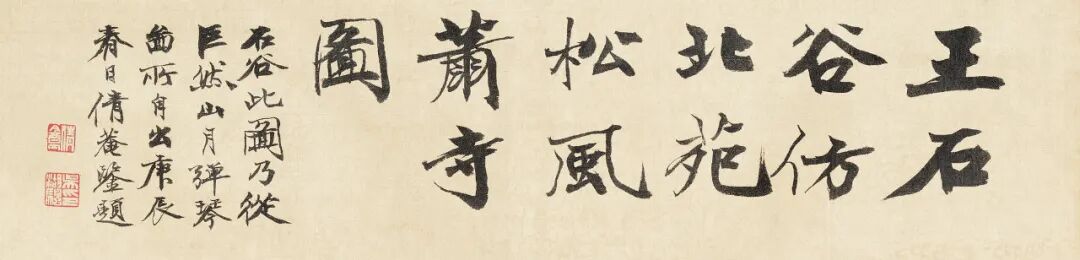 王石
谷仿
北苑
松風
蕭寺
圖
石谷此圖乃從
巨然山月彈琴
啚所自出庚辰
春日倩菴鑒題